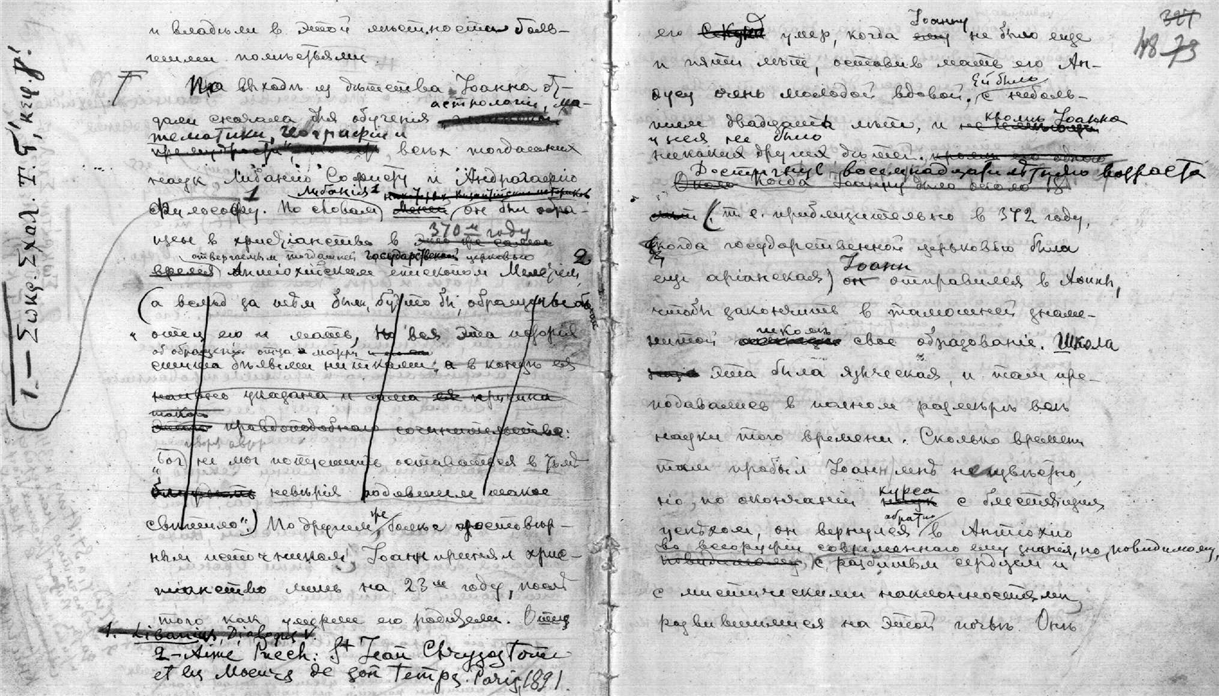 и владѣли в этой мѣстности боль-
шими помѣстьями.
По выходѣ из дѣтства Іоанна от-
дали сначала для обучения астрологіи, ма-
тематики, географіи и
всѣх тогдашних
наук Либанію Софисту и Андрагафію
Философу. По словам Либанія он был обра-
щен в христіанство в 370 м году
отвергаемым тогдашней государственной церковью
время Антіохійским епископом Мелетіем, 2
(а вслѣд за нѣм были, будто бы, обращены
отец его и мать, но вся эта исторія
об обращеніи отца и матери
сшита бѣлыми нитками: а в концѣ ея
указана и
правдоподобного
Бог не мог попустить оставаться в тьмѣ
невѣрія родившим такое
свѣтило".) По другим же, болѣе достовѣр-
ным источникам, Іоанн принял хрис-
тіанство лишь на 23 м году, послѣ
того как умерли его родители. Отец
1. Libanius, Dialogus V
2 - Aimé Puech: St Jean Chrysostome
et les Moeurs de son temps. Paris, 1891.
1. — Σωκρ. Σχολ. Τ. ς', κεφ. γ'.
327
48 73
его умер, когда Іоанну не было еще
и пяти лѣт, оставив мать его Ан-
фусу очень молодой вдовой. Ей было с неболь-
шим двадцать лѣт, и кромѣ Іоанна
у нея не было
никаких других дѣтей.
Достигнув восемнадцатилѣтняго возраста
Около Когда Іоанну было около 18
(т. е. приблизительно в 372 году,
когда государственной церковью была
еще аріанская) Іоанн он отправился в Аѳины,
чтобы закончить в тамошней знаме-
нитой школѣ свое образованіе. Школа
эта была языческая, и там пре-
подавались в полном размѣрѣ всѣ
науки того времени. Сколько времени
там пробыл Іоанн, мнѣ неизвѣстно,
но, по окончании курса с блестящим
успѣхом, он вернулся обратно в Антіохію
во всеоружіи современного ему знанія, но, повидимому,
с разбитым сердцем и
с мистическими наклонностями,
развившимися на этой почвѣ. Онъ